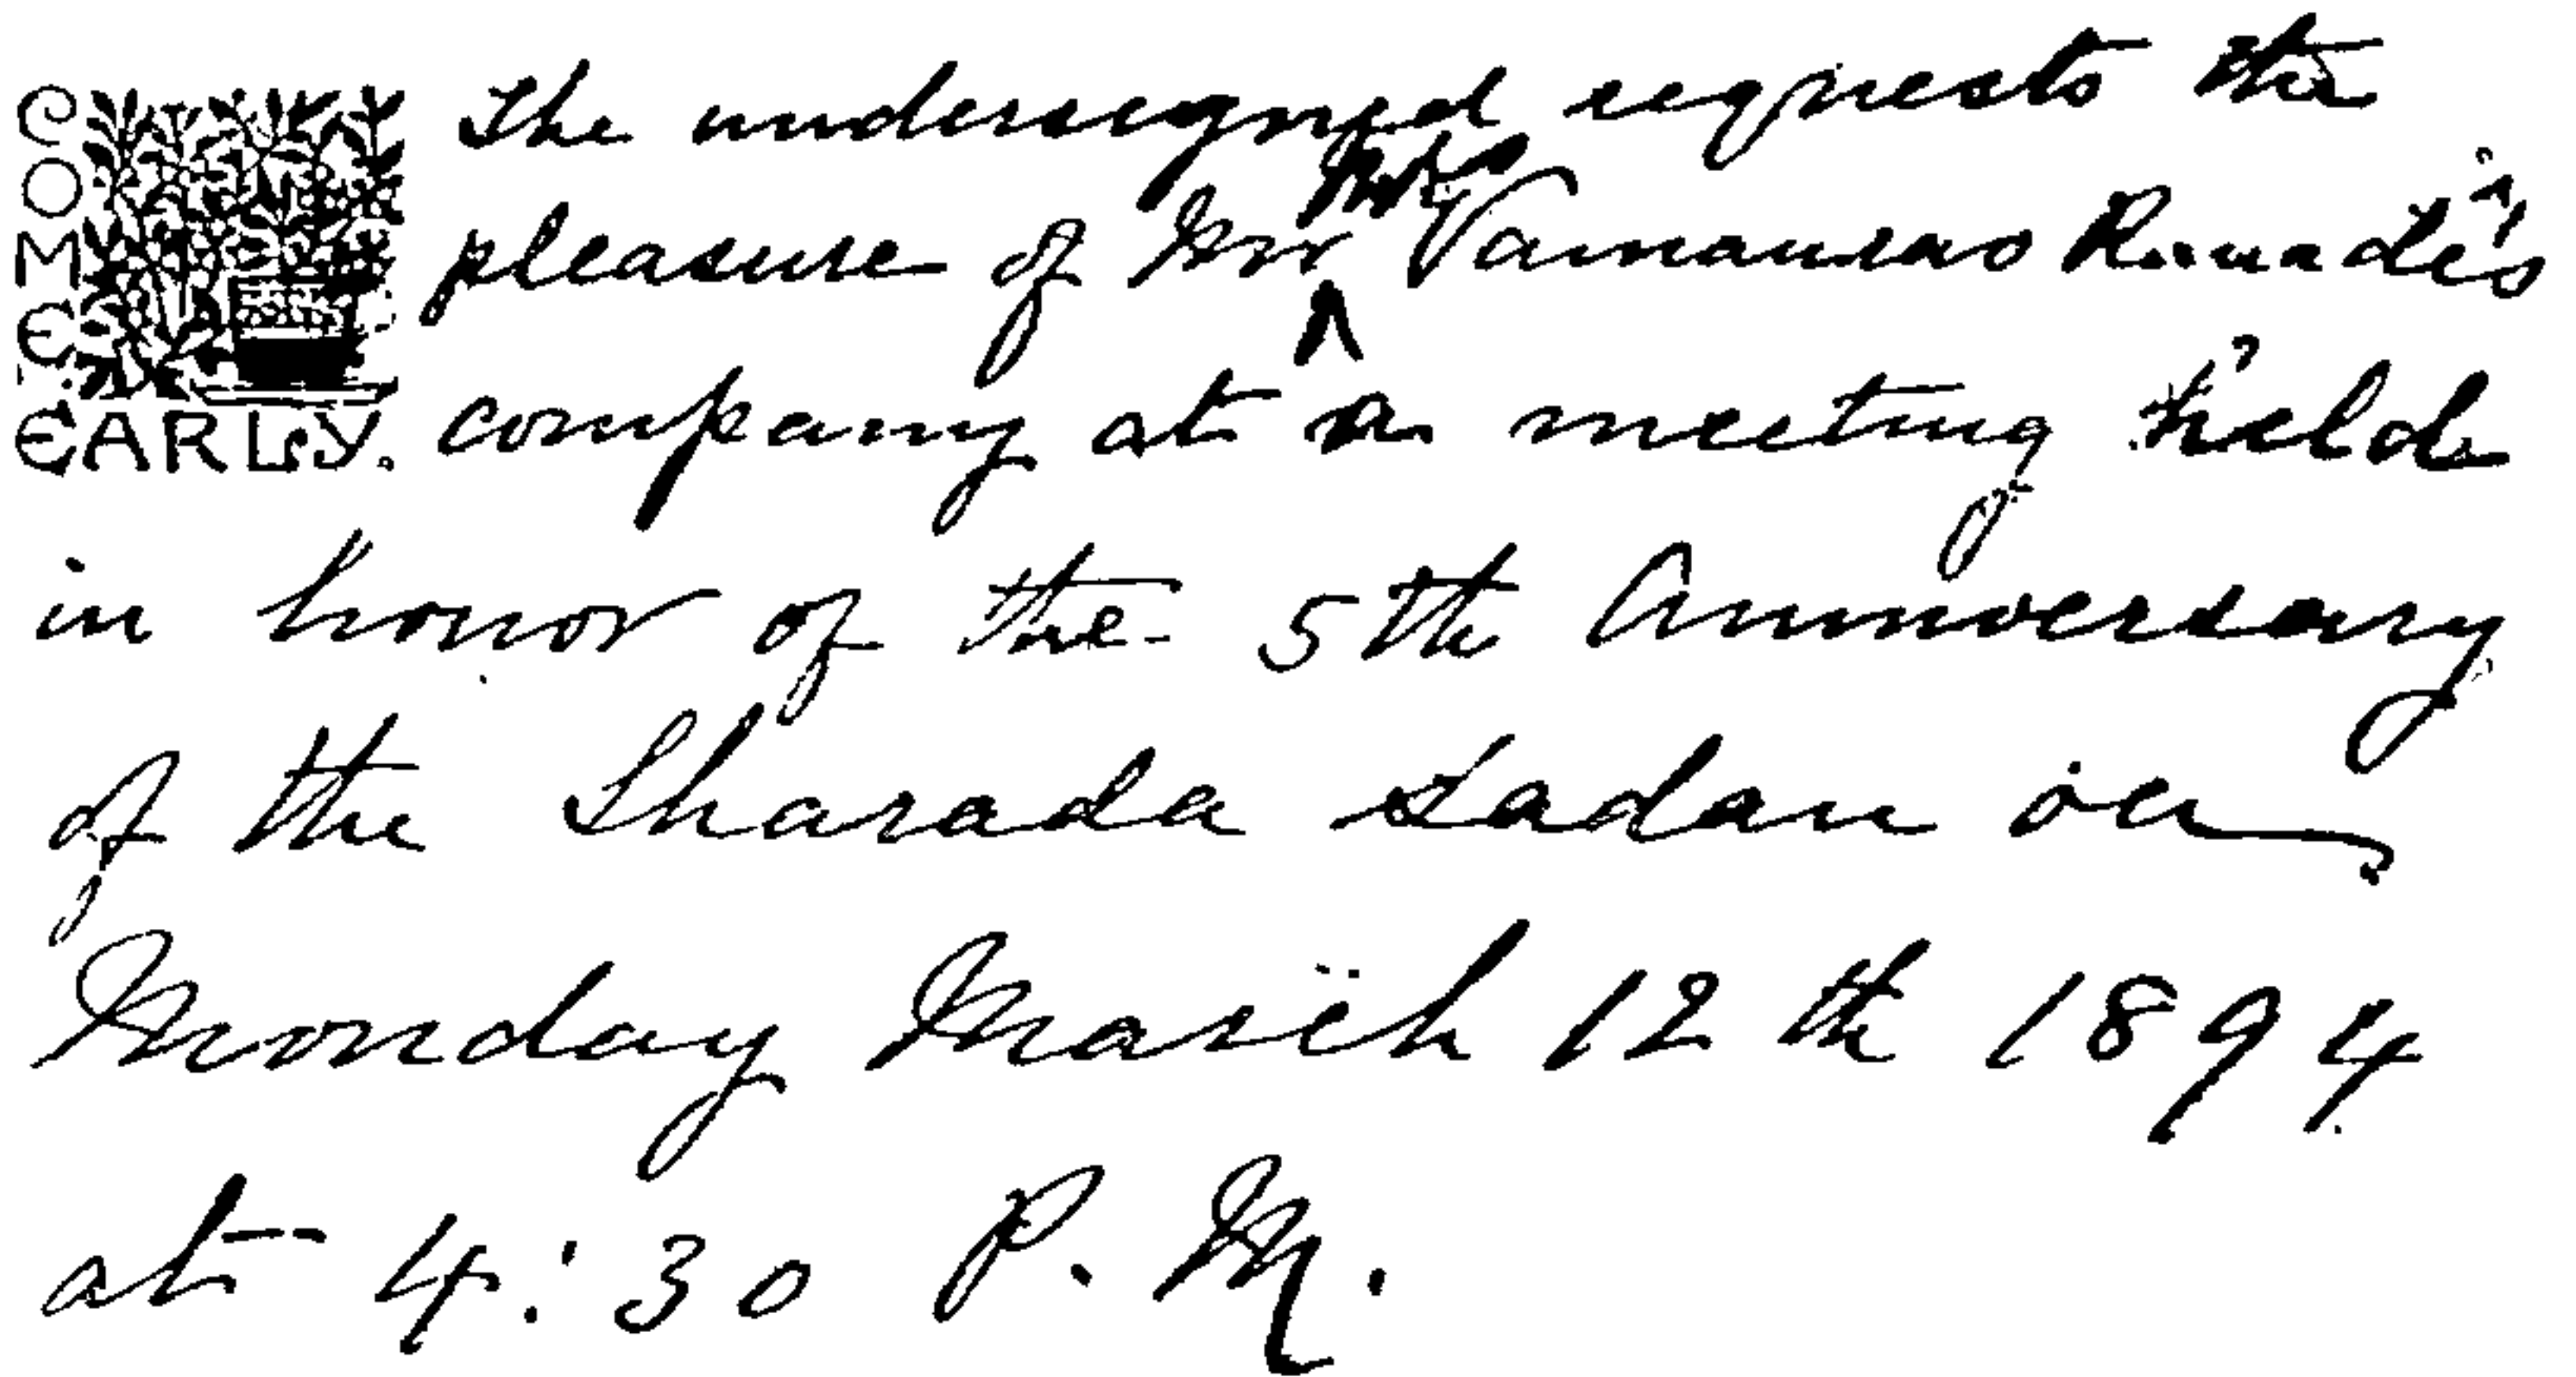 COME
EARLY.
The undersigned requests the
pleasure of Mr Vamanrao Ranade's
company at a meeting held
in honor of the 5th Anniversary
of the Sharada Sadan on
Monday March 12th 1894
at 4:30 P. M.